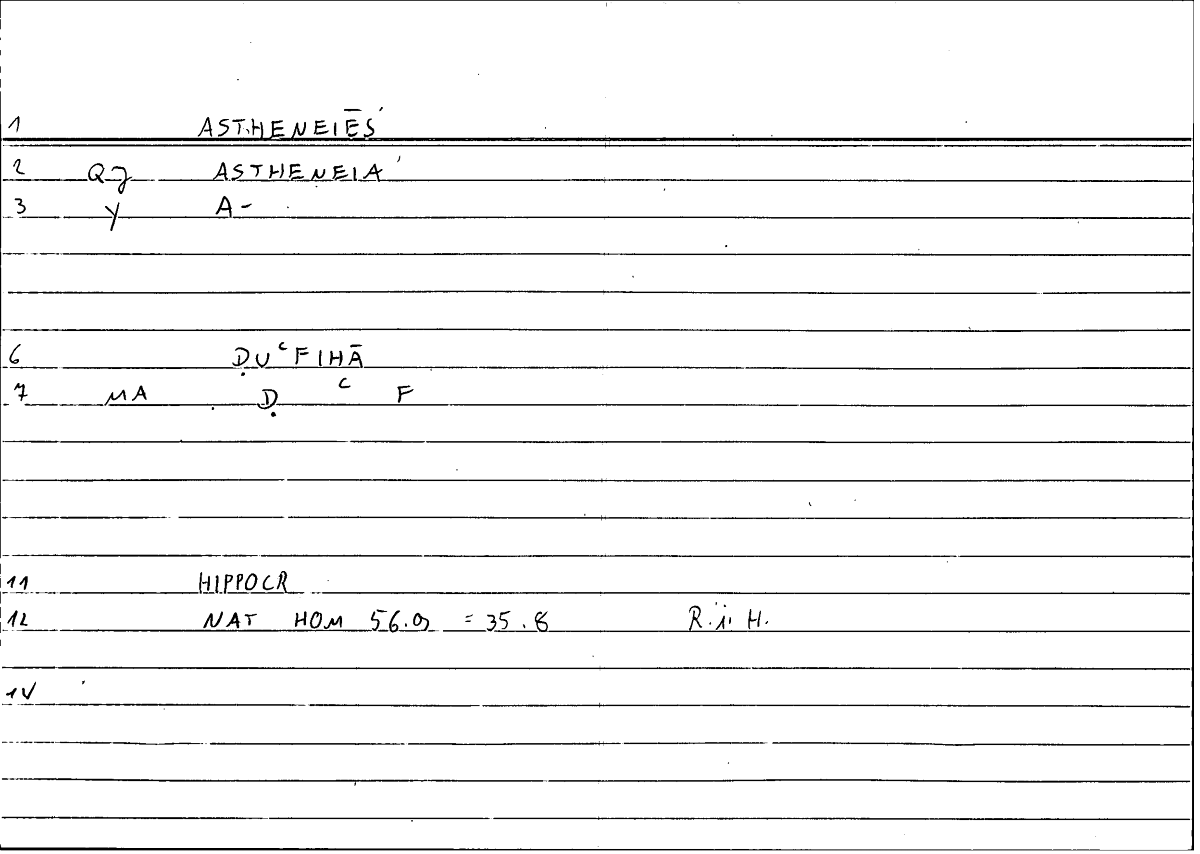 1 ASTHENEIĒS´
2 Qȝ ASTHENEIA´
3 Y A-
6 ḌUᶜFIHĀ
7 MA Ḍ ᶜ F
11 HIPPOCR
12 NAT HOM 56.9 = 35.8